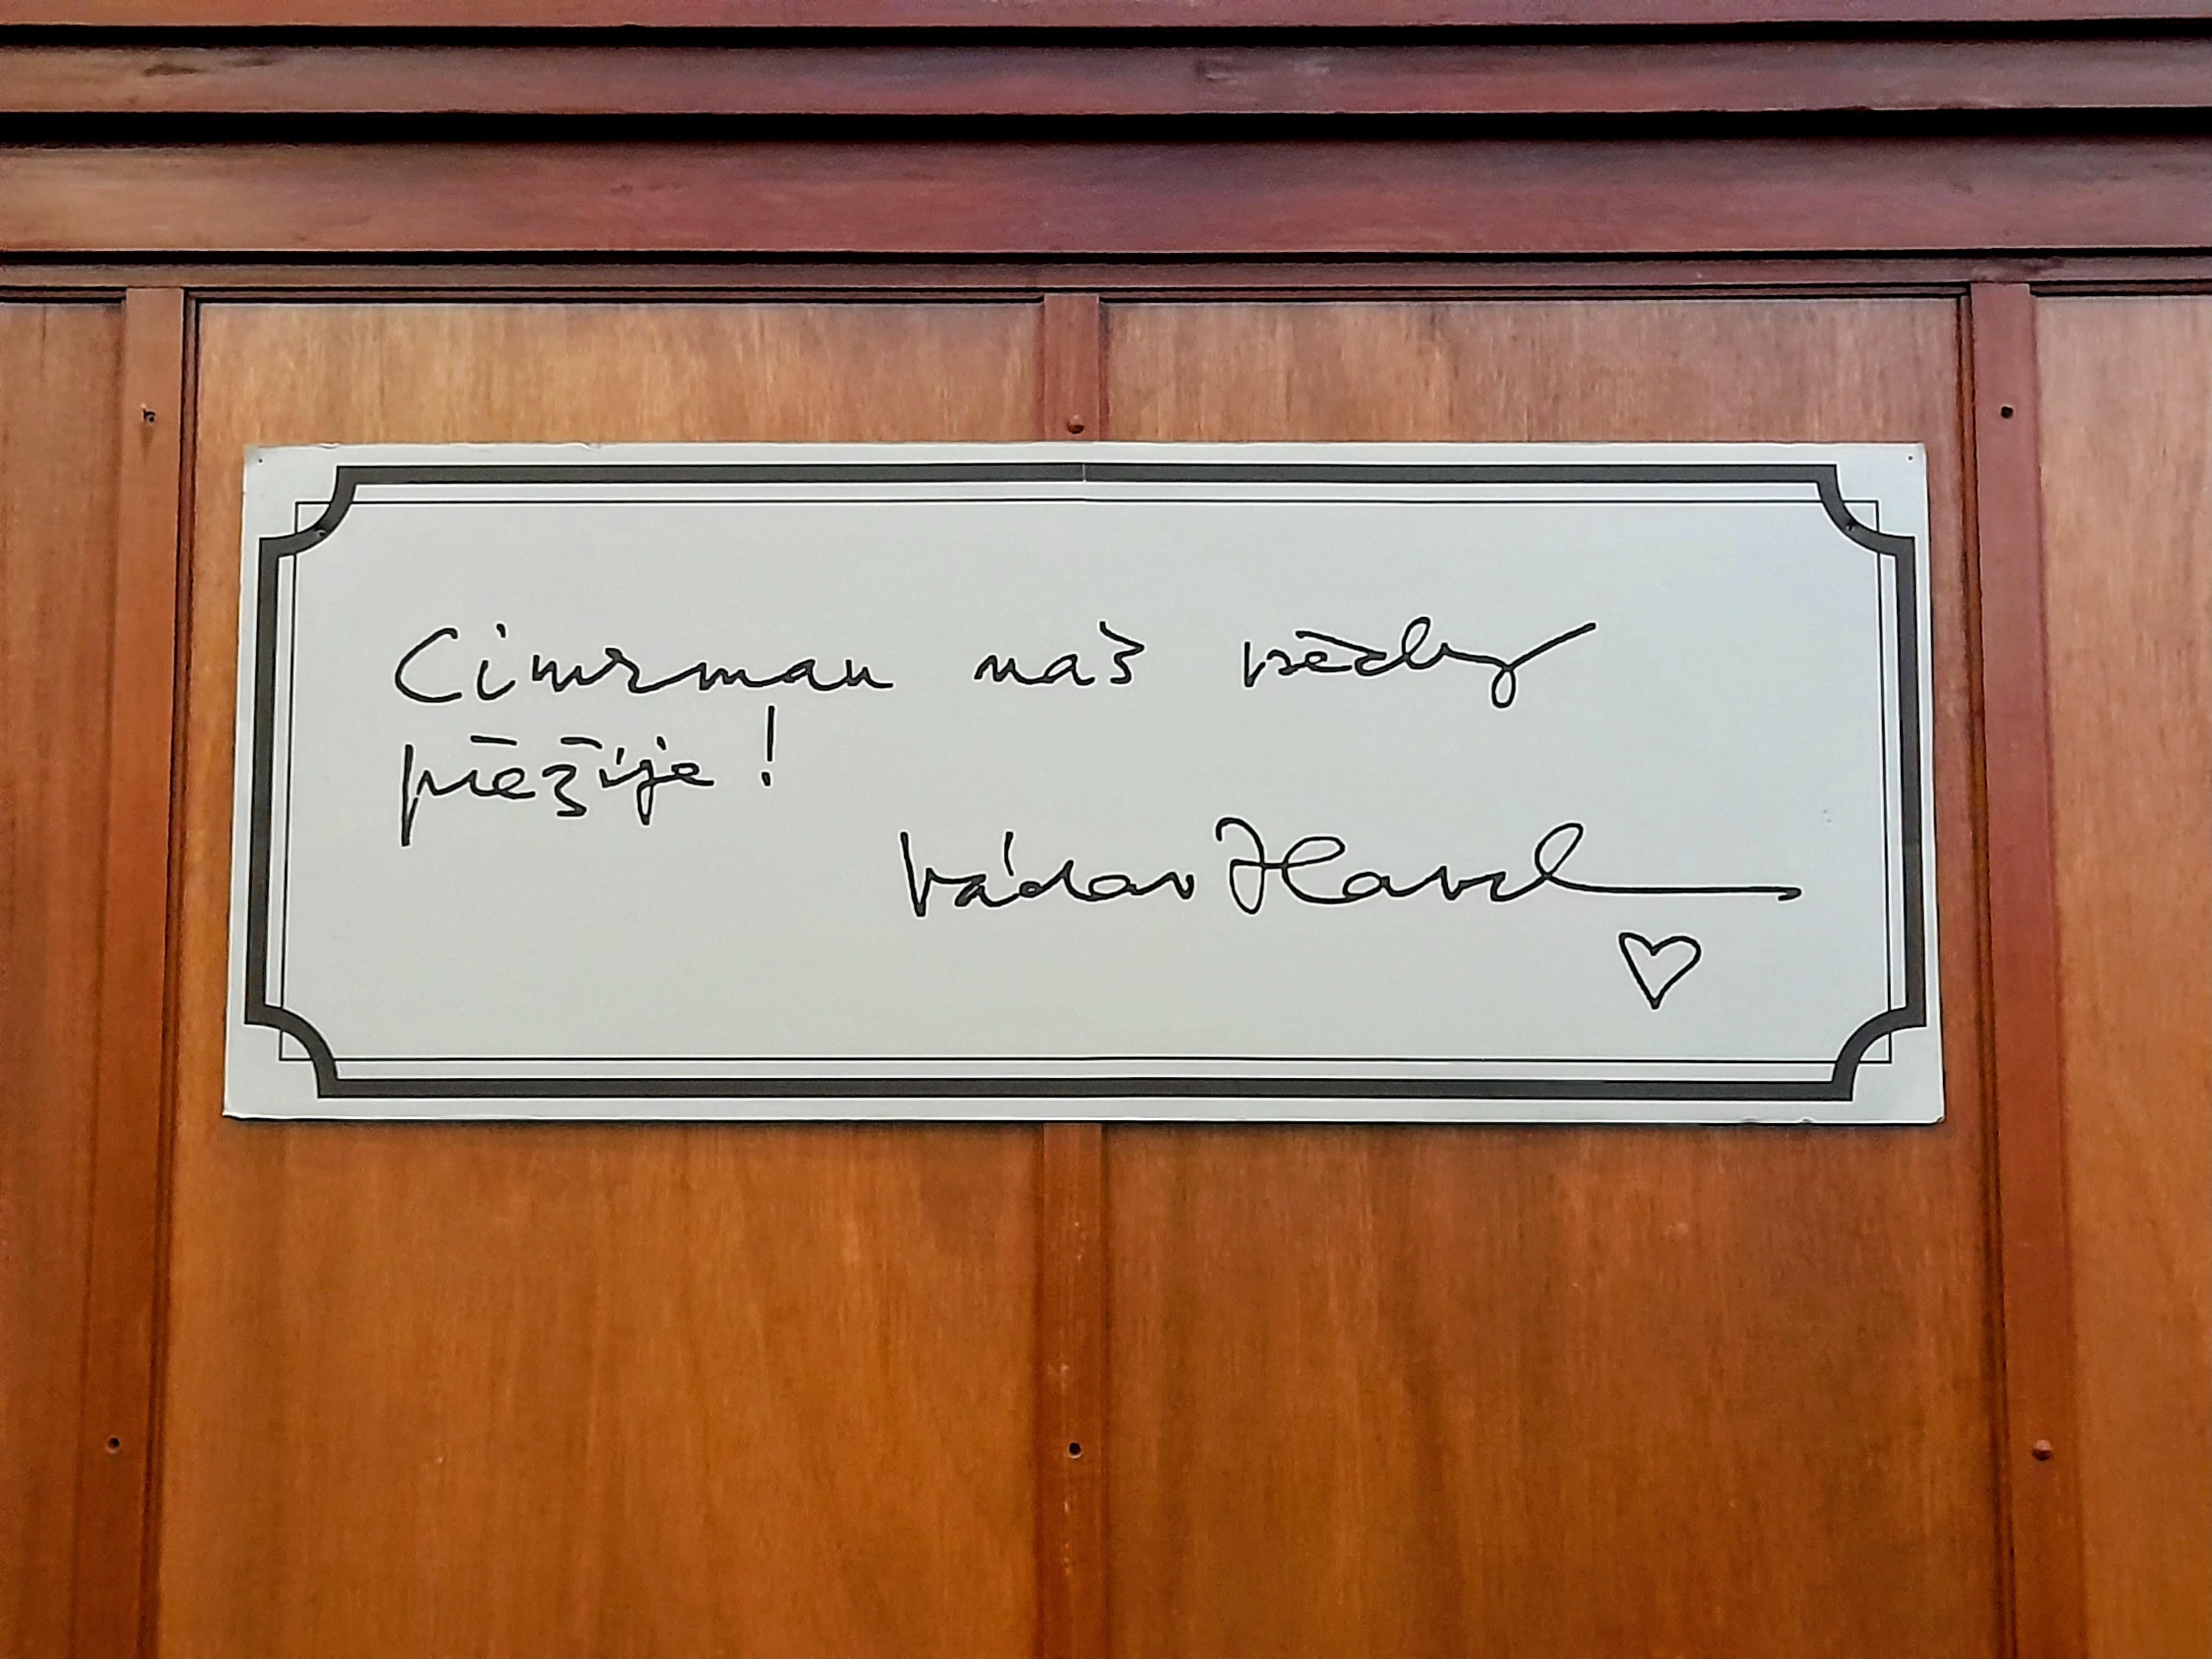 Cimrman nás všechny
přežije!
Václav Havel